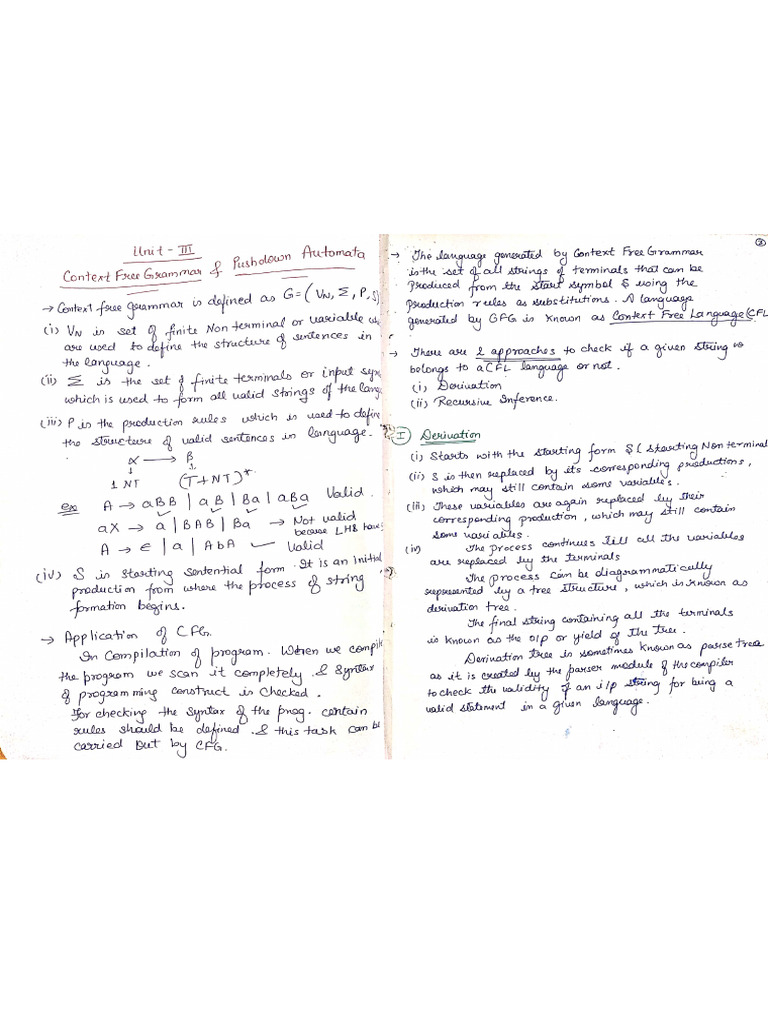 Unit - III
Context Free Grammar & Pushdown Automata
→ Context free grammar is defined as G = (VN, Σ, P, S)
(i) VN is set of finite Non terminal or variable
are used to define the structure of sentences in
the language.
(ii) Σ is the set of finite terminals or input
which is used to form all valid strings of the
(iii) P is the production rules which is used to
the structure of valid sentences in language.
α → β
↓ ↓
1 NT (T+NT)*
ex A → aBB | aB | Ba | aBa Valid.
aX → a | BAB | Ba → Not valid
because LHS have
A → ϵ | a | AbA ✓ Valid
(iv) S is starting sentential form. It is an initial
production from where the process of string
formation begins.
→ Application of CFG.
In Compilation of program. When we
the program we scan it completely & syntax
of programming construct is checked.
For checking the syntax of the prog. certain
rules should be defined. & this task can be
carried out by CFG.
②
→ The language generated by Context Free Grammar
is the set of all strings of terminals that can be
produced from the start symbol S using the
production rules as substitutions. A language
generated by CFG is known as Context Free Language (CFL
→ There are 2 approaches to check if a given string is
belongs to a CFL language or not.
(i) Derivation
(ii) Recursive Inference.
I Derivation
(i) Starts with the starting form S (Starting Non terminal
(ii) S is then replaced by its corresponding productions,
which may still contain some variables.
(iii) These variables are again replaced by their
corresponding production, which may still contain
some variables.
(iv) The process continues till all the variables
are replaced by the terminals
The process can be diagrammatically
represented by a tree structure, which is known as
derivation tree.
The final string containing all the terminals
is known as the o/p or yield of the tree.
Derivation tree is sometimes known as parse tree
as it is created by the parser module of the compiler
to check the validity of an i/p string for being a
valid statement in a given language.